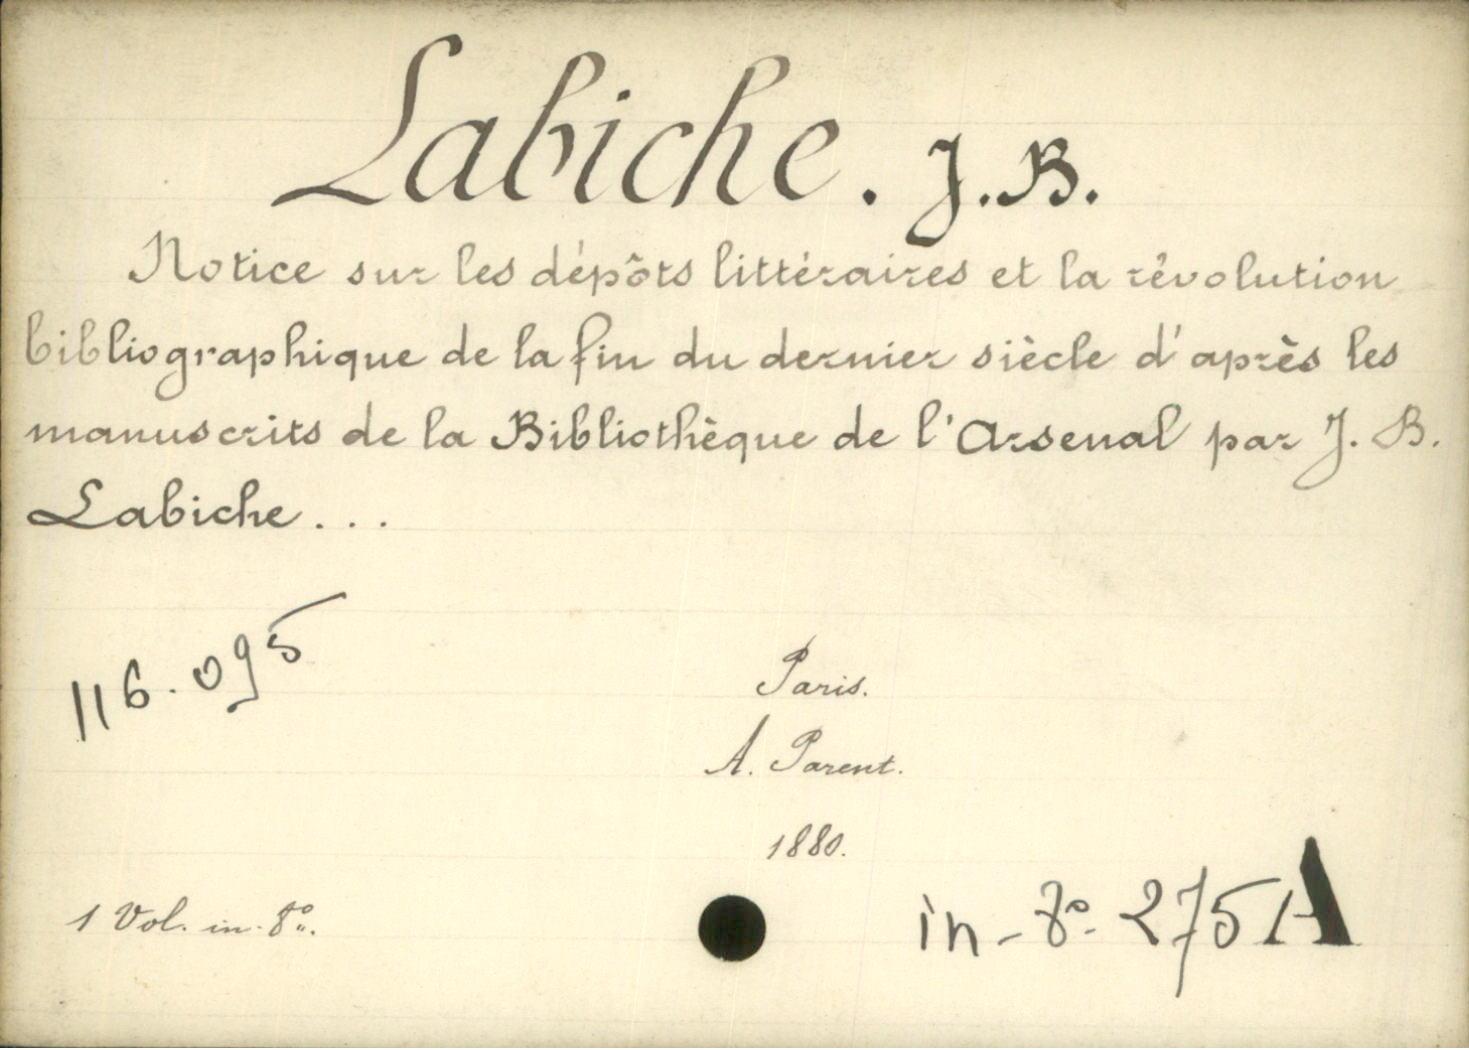 Labiche. J. B.
Notice sur les dépôts littéraires et la révolution
bibliographique de la fin du dernier siècle d'après les
manuscrits de la Bibliothèque de l'Arsenal par J. B.
Labiche...
116.095
Paris.
A. Parent.
1880.
1 Vol. in-8º.
in-8º 275 A